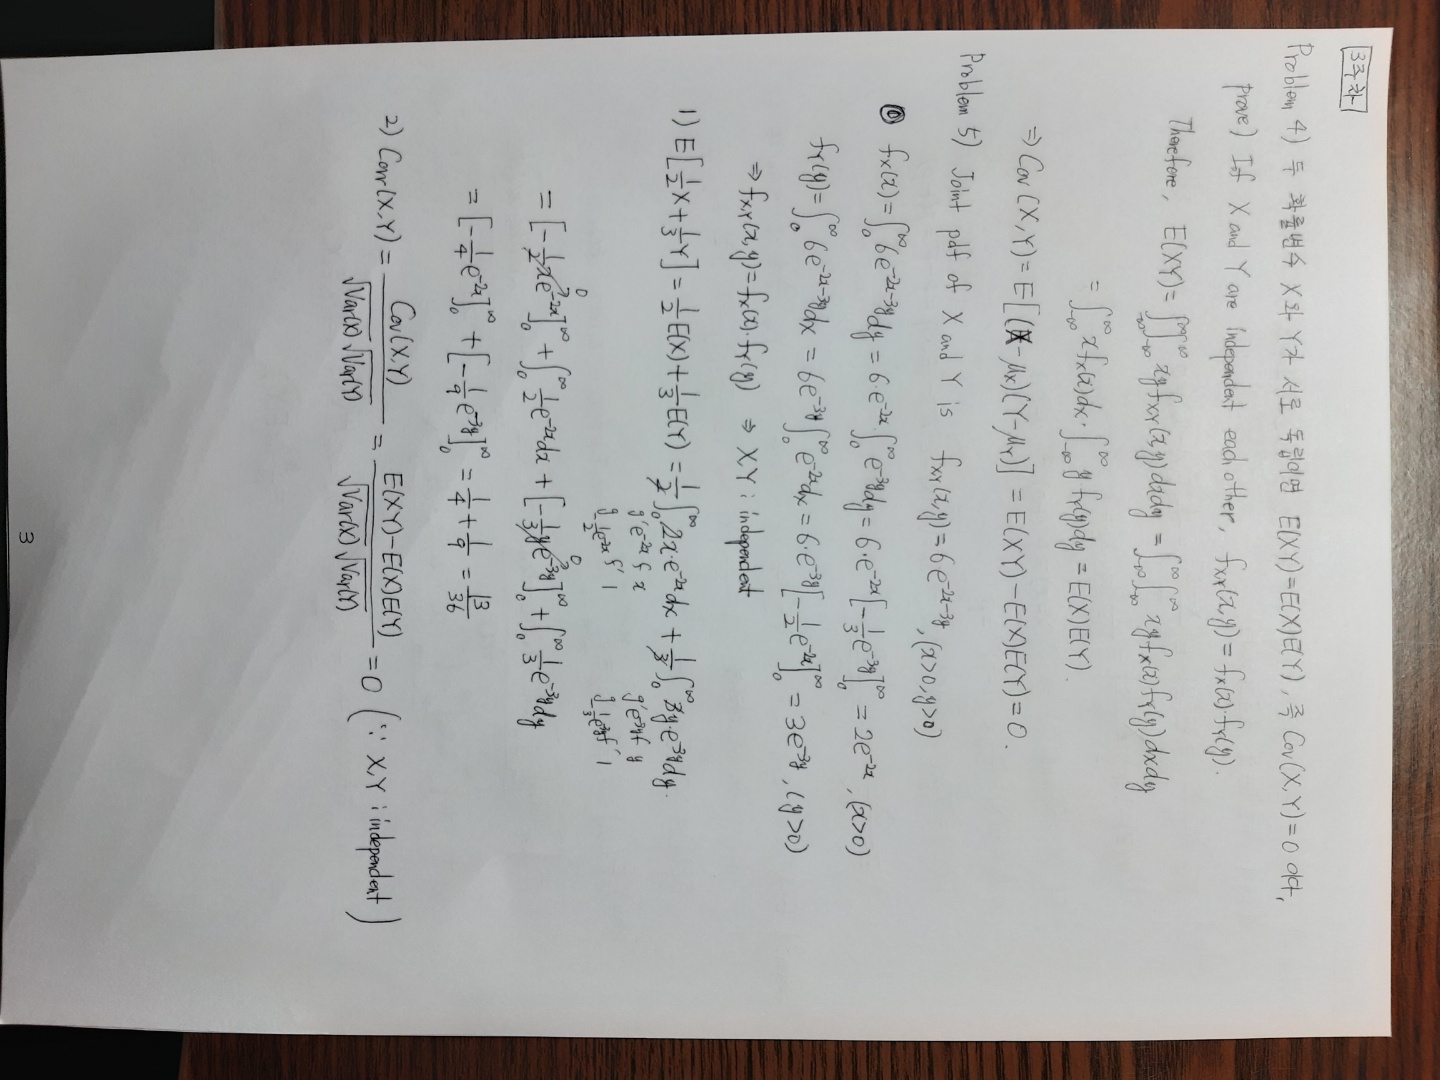 3주차
Problem 4) 두 확률변수 X와 Y가 서로 독립이면 E(XY)=E(X)E(Y), 즉 Cov(X,Y)=0 이다.
prove) If X and Y are independent each other, f_XY(x,y) = f_X(x)·f_Y(y).
Therefore, E(XY)= ∫_{-∞}^{∞}∫_{-∞}^{∞} xy f_XY(x,y) dxdy = ∫_{-∞}^{∞}∫_{-∞}^{∞} xy f_X(x) f_Y(y) dxdy
= ∫_{-∞}^{∞} x f_X(x) dx · ∫_{-∞}^{∞} y f_Y(y) dy = E(X)E(Y).
⇒ Cov(X,Y) = E[(X-μ_X)(Y-μ_Y)] = E(XY)-E(X)E(Y)=0.
Problem 5) Joint pdf of X and Y is f_XY(x,y)=6e^{-2x-3y}, (x>0, y>0)
⓪ f_X(x)=∫_0^∞ 6e^{-2x-3y}dy = 6·e^{-2x}∫_0^∞ e^{-3y}dy = 6·e^{-2x}[-1/3 e^{-3y}]_0^∞ = 2e^{-2x}, (x>0)
f_Y(y)=∫_0^∞ 6e^{-2x-3y}dx = 6e^{-3y}∫_0^∞ e^{-2x}dx = 6·e^{-3y}[-1/2 e^{-2x}]_0^∞ = 3e^{-3y}, (y>0)
⇒ f_XY(x,y)=f_X(x)·f_Y(y) ⇒ X,Y : independent
1) E[1/2 X+1/3 Y] = 1/2 E(X)+1/3 E(Y) = 1/2 ∫_0^∞ 2x·e^{-2x}dx + 1/3 ∫_0^∞ 3y·e^{-3y}dy.
g' e^{-2x} f x g' e^{-3y} f y
g -1/2 e^{-2x} f' 1 g -1/3 e^{-3y} f' 1
0 0
= [-1/2 xe^{-2x}]_0^∞ + ∫_0^∞ 1/2 e^{-2x}dx + [-1/3 ye^{-3y}]_0^∞ + ∫_0^∞ 1/3 e^{-3y}dy
= [-1/4 e^{-2x}]_0^∞ + [-1/9 e^{-3y}]_0^∞ = 1/4 + 1/9 = 13/36
2) Corr(X,Y) = Cov(X,Y)/(√Var(X) √Var(Y)) = (E(XY)-E(X)E(Y))/(√Var(X) √Var(Y)) = 0 (∵ X,Y : independent)
3